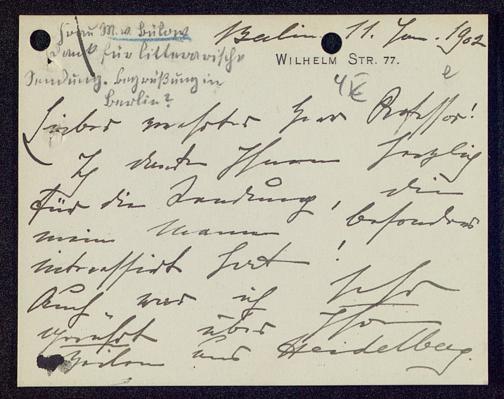 Frau M. v. Bülow
Dank für litterarische
Sendung. Begrüßung in
Berlin?
Berlin 11. Jan. 1902
WILHELM STR. 77.
Lieber verehrter Herr Professor!
Ich danke Ihnen herzlich
für die Sendung, die
mein Mann besonders
interessirt hat!
Auch war ich sehr
gerührt über Ihre
Zeilen aus Heidelberg.